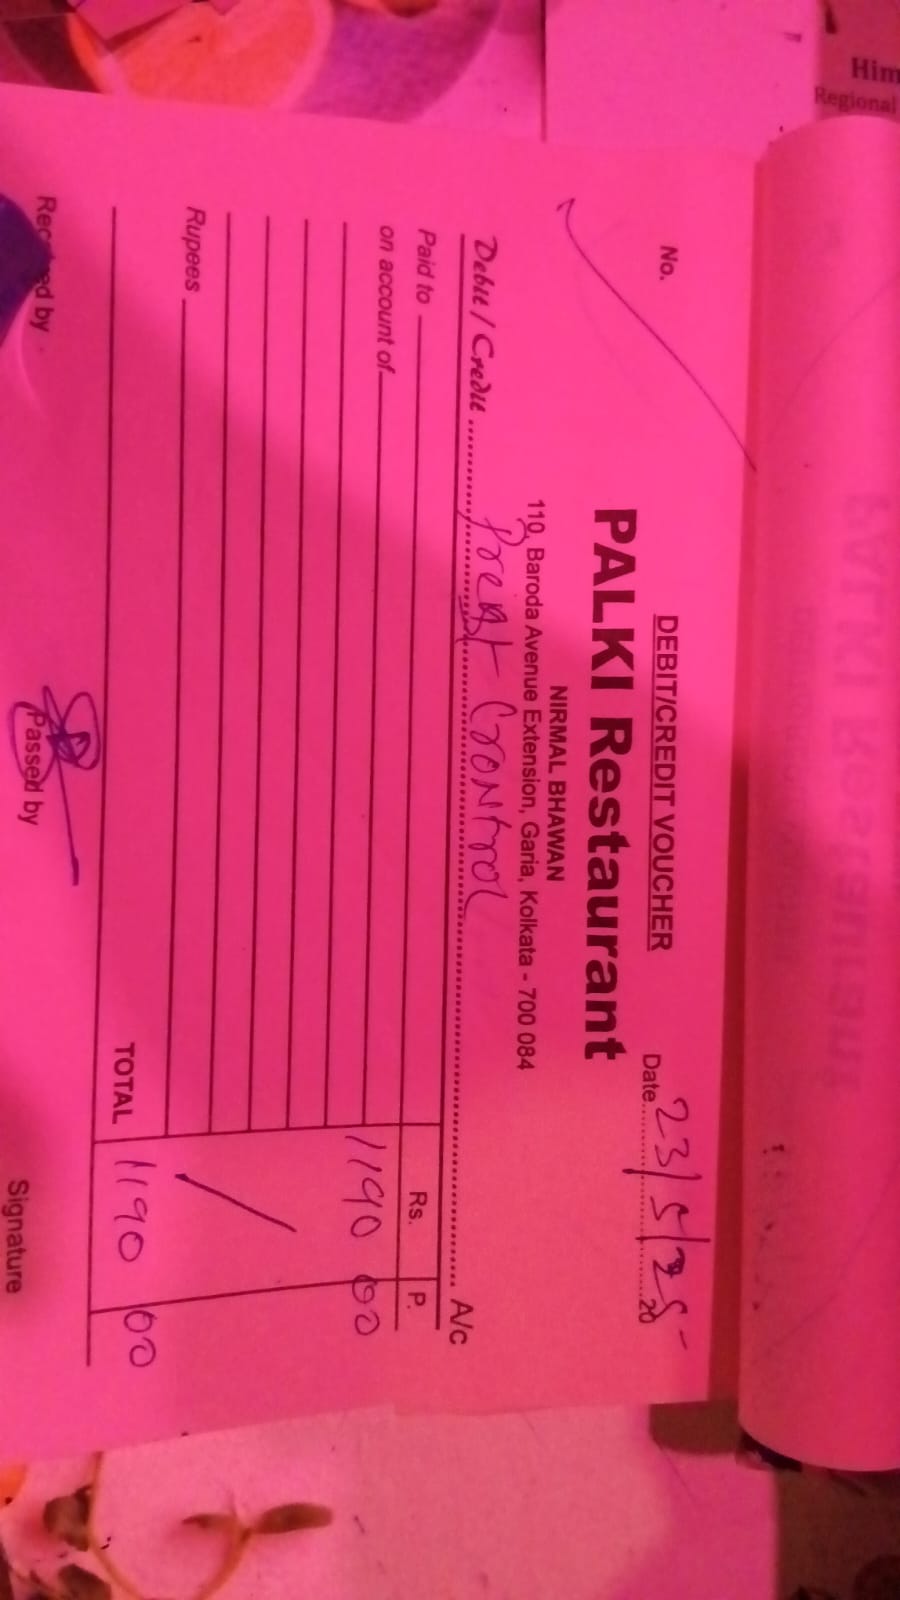 Him
Regional
DEBIT/CREDIT VOUCHER
No.
Date 23/5/25
20
PALKI Restaurant
NIRMAL BHAWAN
110, Baroda Avenue Extension, Garia, Kolkata - 700 084
Debit / Credit Prest Control A/c
Rs. P.
Paid to
on account of
1190 00
Rupees
TOTAL 1190 00
Received by Passed by Signature